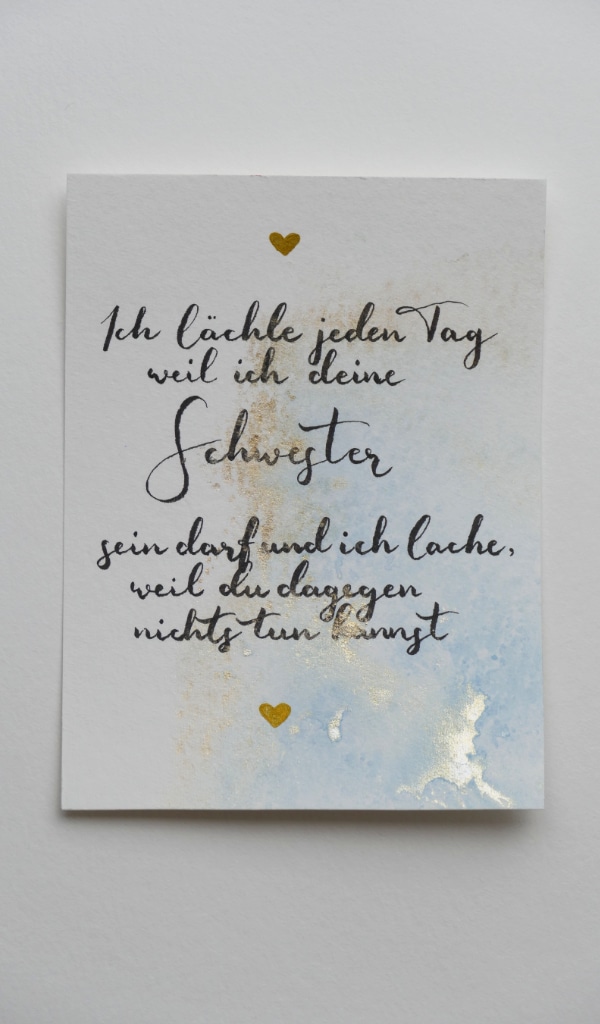 Ich lächle jeden Tag
weil ich deine
Schwester
sein darf und ich lache,
weil du dagegen
nichts tun kannst